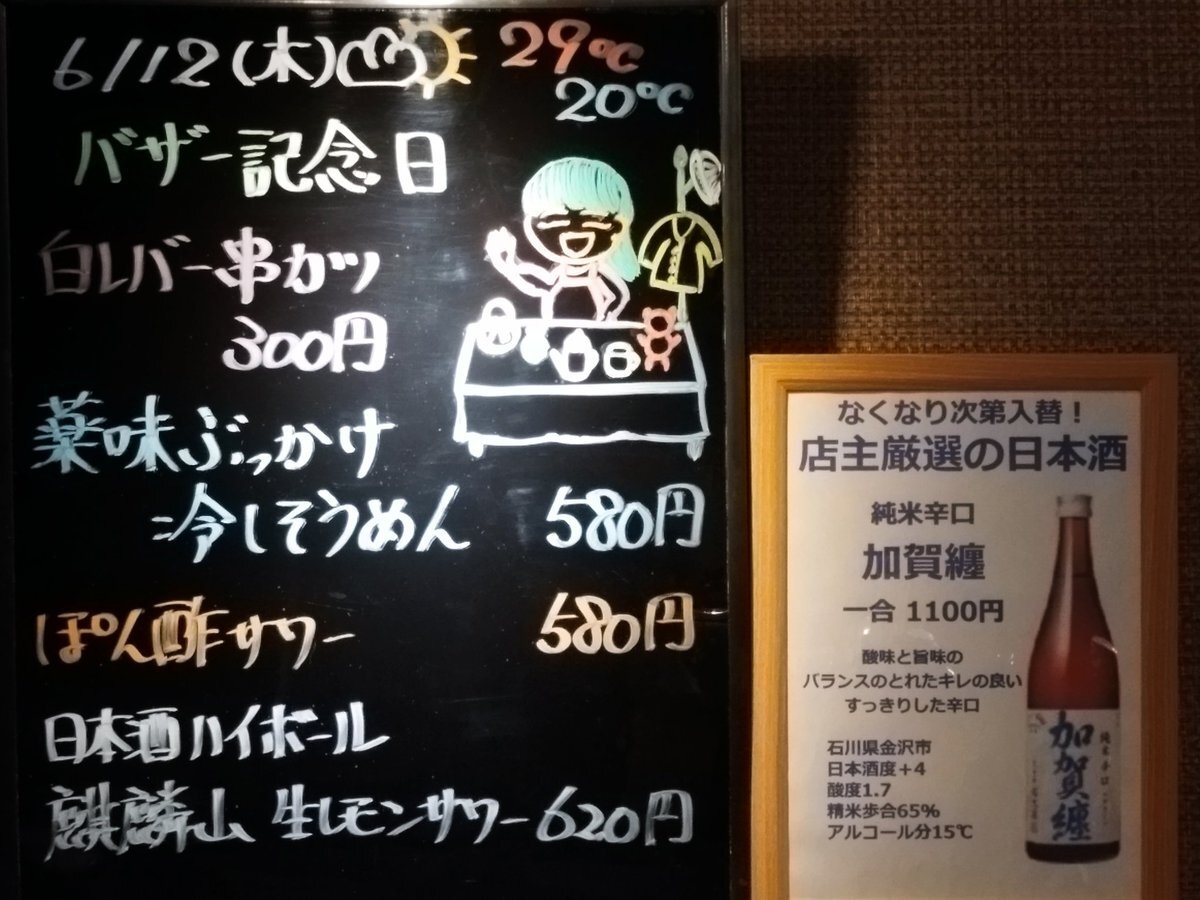 6/12(木)
29℃
20℃
バザー記念日
白レバー串カツ
300円
薬味ぶっかけ
冷しそうめん 580円
ぽん酢サワー 580円
日本酒ハイボール
麒麟山 生レモンサワー 620円
なくなり次第入替！
店主厳選の日本酒
純米辛口
加賀纏
一合 1100円
酸味と旨味の
バランスのとれたキレの良い
すっきりした辛口
石川県金沢市
日本酒度＋4
酸度1.7
精米歩合65%
アルコール分15℃
加賀纏
純米辛口